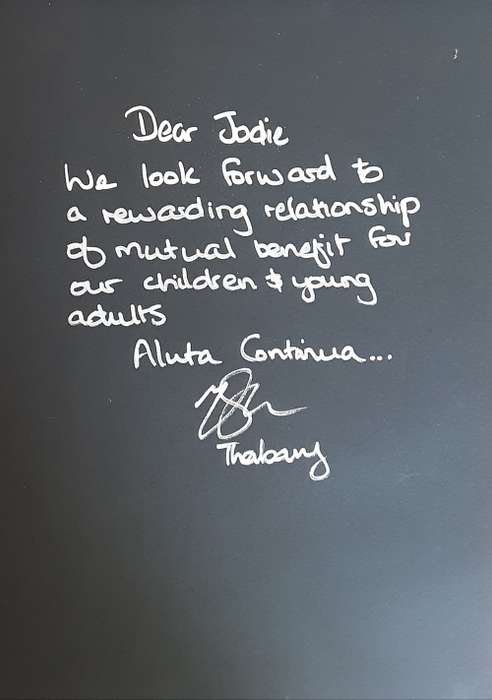 Dear Jodie
We look forward to
a rewarding relationship
of mutual benefit for
our children & young
adults
Aluta Continua...
Thabang